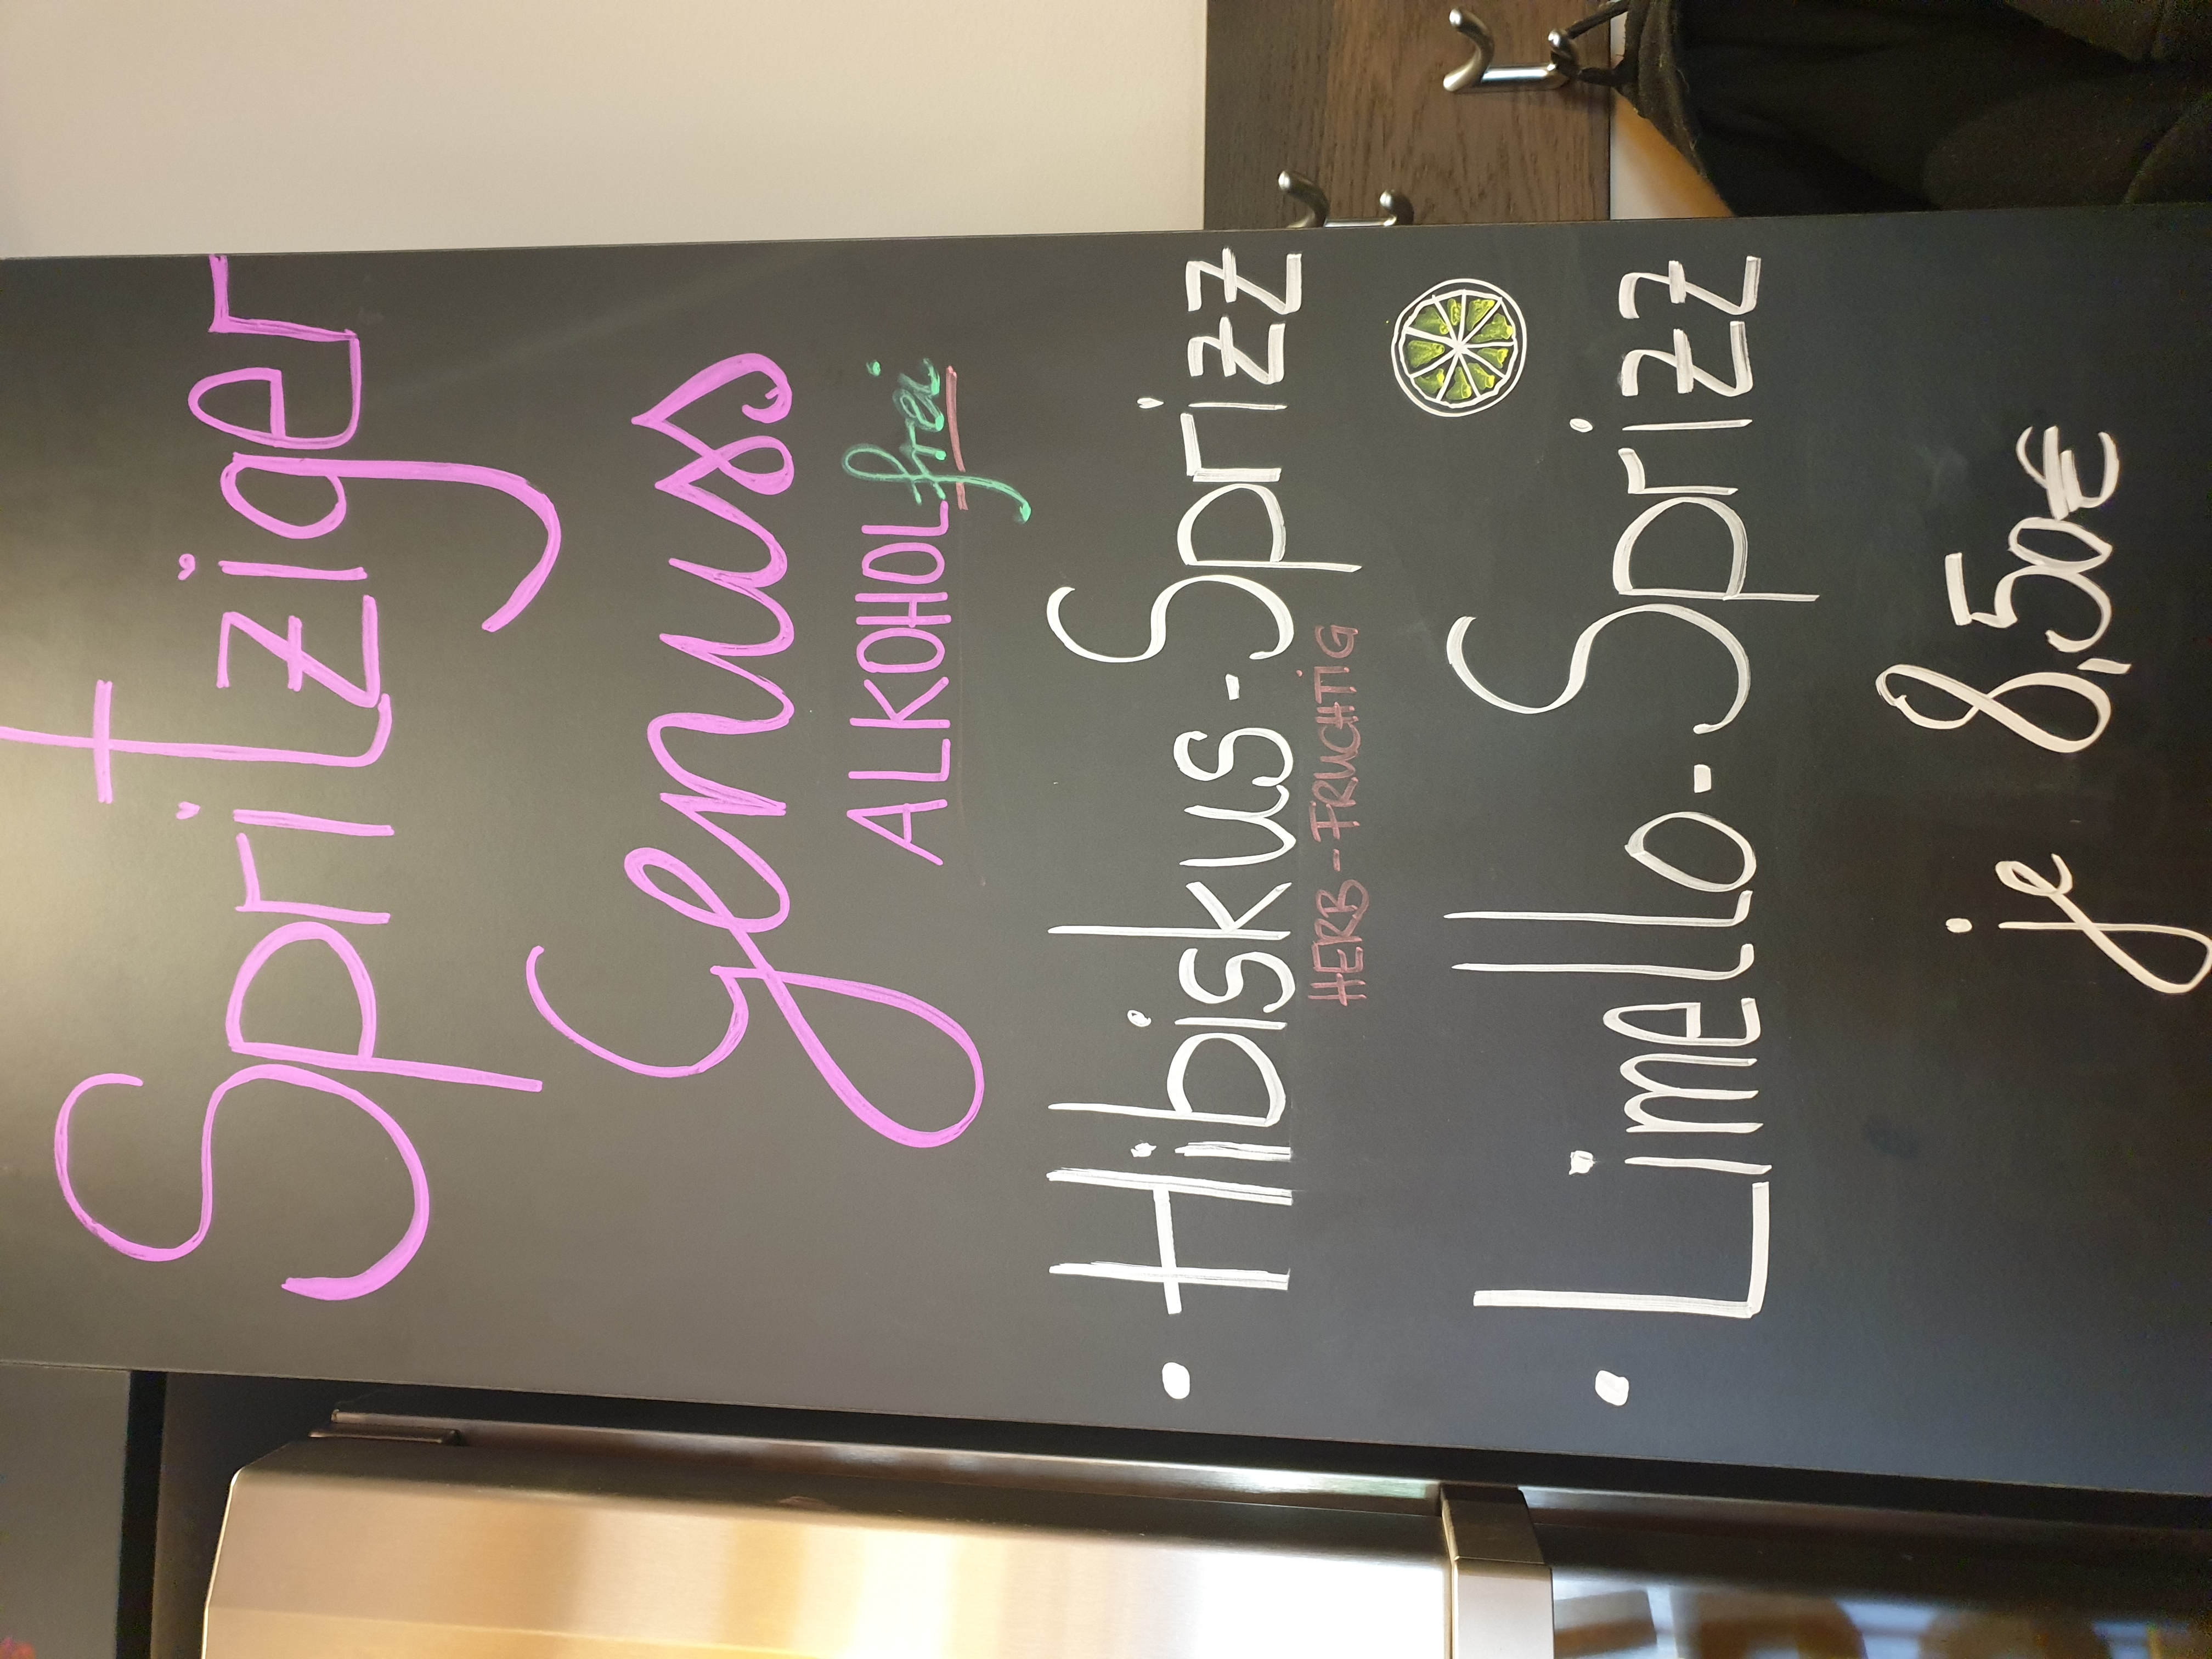 Spritziger
Genuss
ALKOHOLfrei
• Hibiskus-Sprizz
HERB-FRUCHTIG
• Limello-Sprizz
je 8,50€